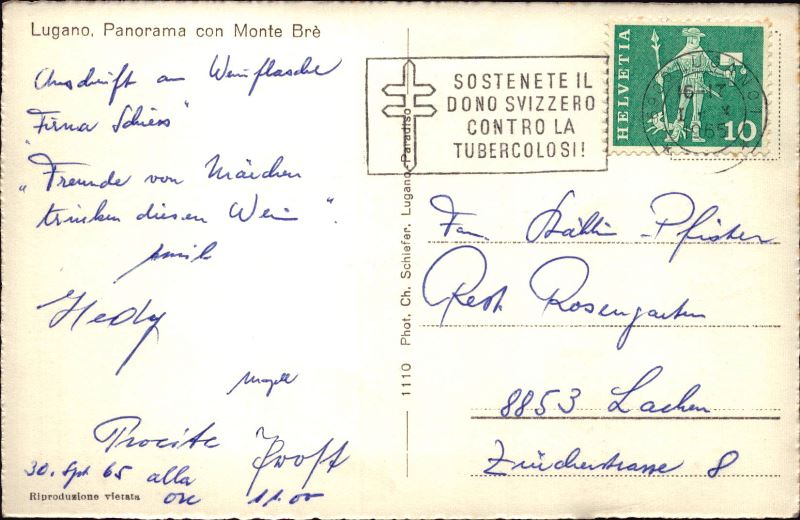 Lugano, Panorama con Monte Brè
Anschrift an Weinflasche
Firma Schiess"
"Freunde von Märchen
trinken diesen Wein".
Hedy
30. Spt 65 alla
ore 11.00
Riproduzione vietata
1110 Phot. Ch. Schiefer, Lugano-Paradiso
SOSTENETE IL
DONO SVIZZERO
CONTRO LA
TUBERCOLOSI!
HELVETIA
10
16-17
1965
Fam. Pfister
Rest. Rosengarten
8853 Lachen
Zürcherstrasse 8